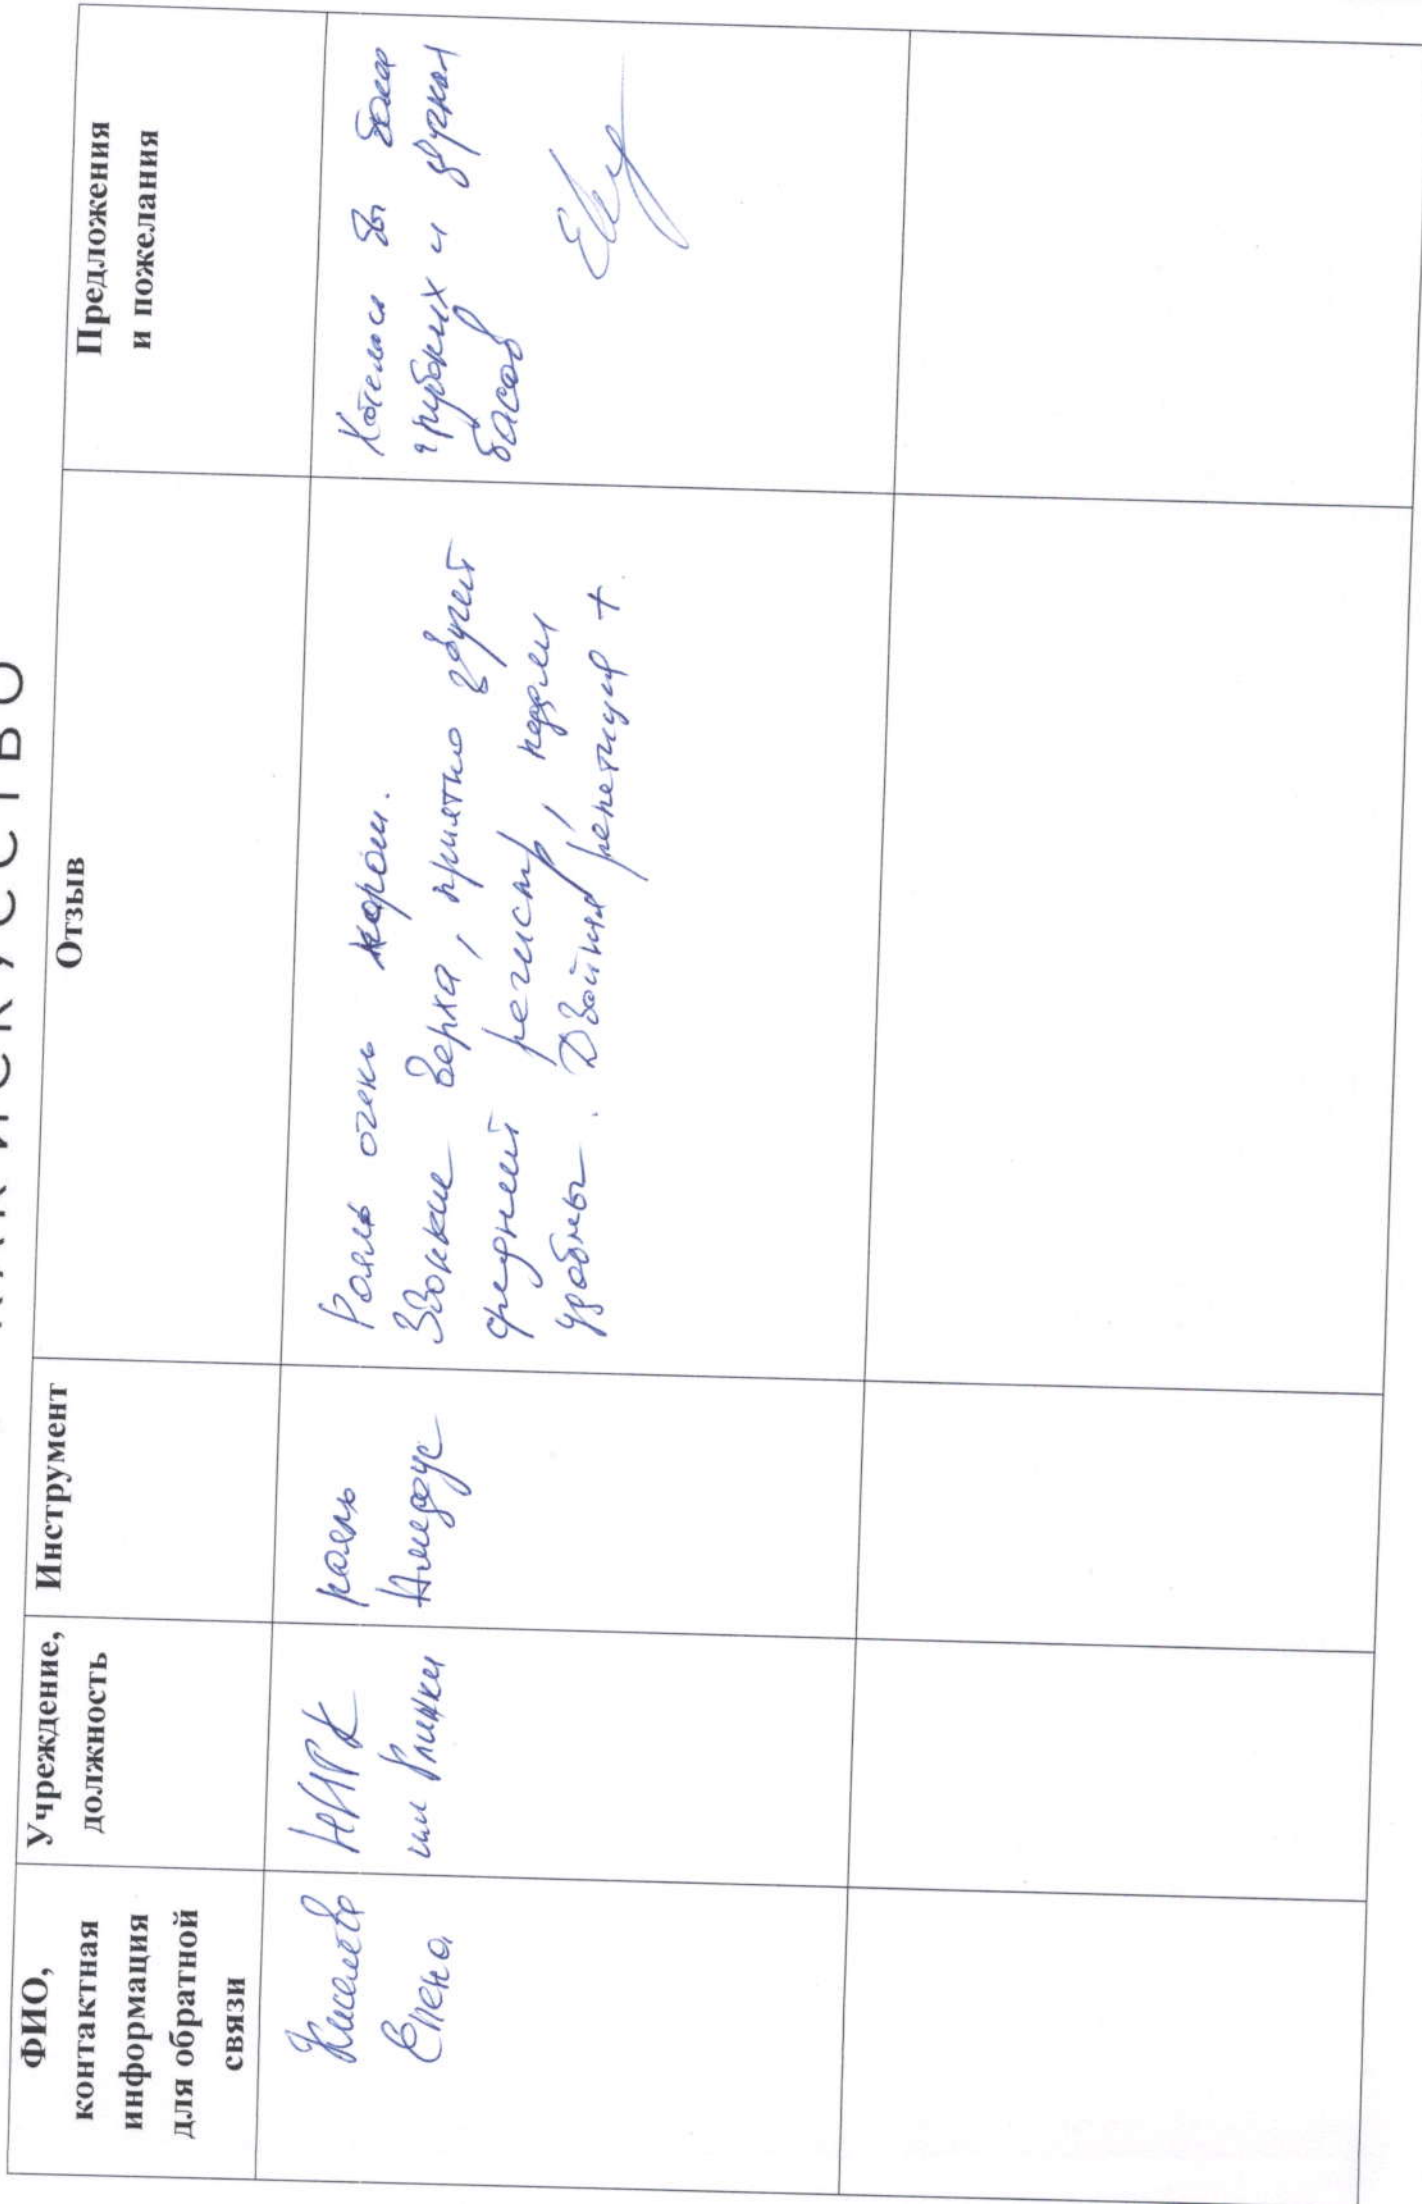 КАК ИСКУССТВО
ФИО,
контактная
информация
для обратной
связи
Учреждение,
должность
Инструмент
Отзыв
Предложения
и пожелания
Киселева
Елена
НГК
им Глинки
рояль
Амадеус
Рояль очень хорош.
Звонкие верха, приятно звучит
средний регистр, педали
удобны. Двойная репетиция +
Хотелось бы более
глубоких и
басов